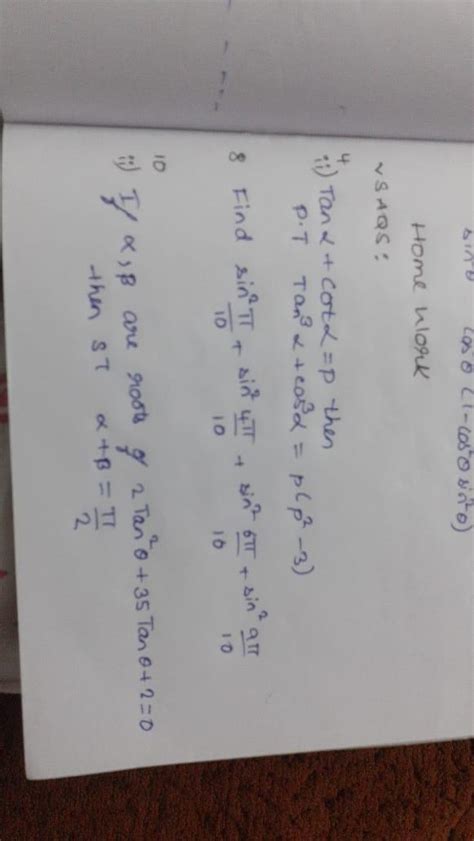 sinθ cosθ (1-cos²θ sin²θ)
Home Work
VSAQS:
4
ii) Tanα + Cotα = p then
P.T Tan³α + cot³α = p(p² - 3)
8 Find sin² π/10 + sin² 4π/10 + sin² 6π/10 + sin² 9π/10
10
ii) If α, β are roots of 2Tan²θ + 35Tanθ + 2 = 0
then ST α + β = π/2